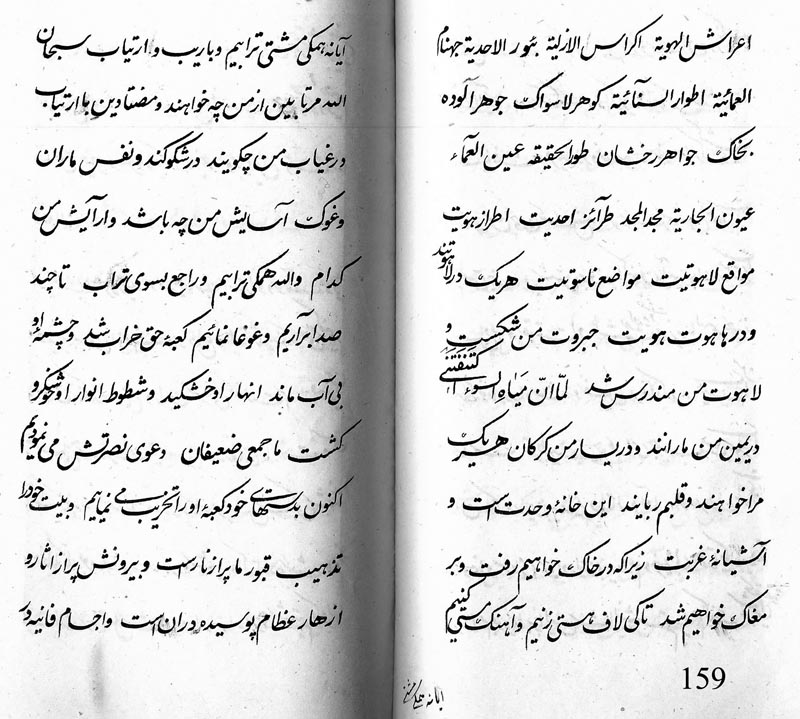 اعراش الهویة اکراس الازلیة بئور الاحدیة جهنام
العمائیة اطوار السنآئیة کوهر لاسواک جوهر آلوده
بخاک جواهر رخشان طور الحقیقه عین العمآء
عیون الجاریة مجد المجد طرآئز احدیت اطراز هویت
مواقع لاهوتیت مواضع ناسوتیت هریک در لاهوتند
و در هاهوت هویت جبروت من شکست و
لاهوت من مندرس شد لمّا انّ میاه السوء
در یمین من مارانند و در یسار من کرکان هریک
مرا خواهند و قلبم ربایند این خانهٔ وحدتست و
آشیانهٔ غربت زیرا که در خاک خواهیم رفت و بر
مغاک خواهیم شد تا کی لاف هستی زنیم و آهنک مستی کنیم
ایانه همکی مشتی
159
آیانه همکی مشتی ترابیم و باریب و ارتیاب سبحان
الله مرتابین از من چه خواهند و مضتادین با ارتیاب
در غیاب من چکویند در شکوکند و نفس ماران
و غوک آسایش من چه باشد و آرآیش من
کدام والله همکی ترابیم و راجع بسوی تراب تا چند
صدا برآریم و غوغا نمائیم کعبهٔ حق خراب شد و چشمهٔ او
بی آب ماند انهار او خشکید و شطوط انوار او
کشت ما جمعی ضعیفان دعوی نصرتش می نمودیم
اکنون بدستهای خود کعبهٔ او را تخریب می نماهیم و بیت خود را
تذهیب قبور ما پر از نار است و بیرونش پر از اثار و
ازهار عظام پوسیده در ان است و اجام فانیه در